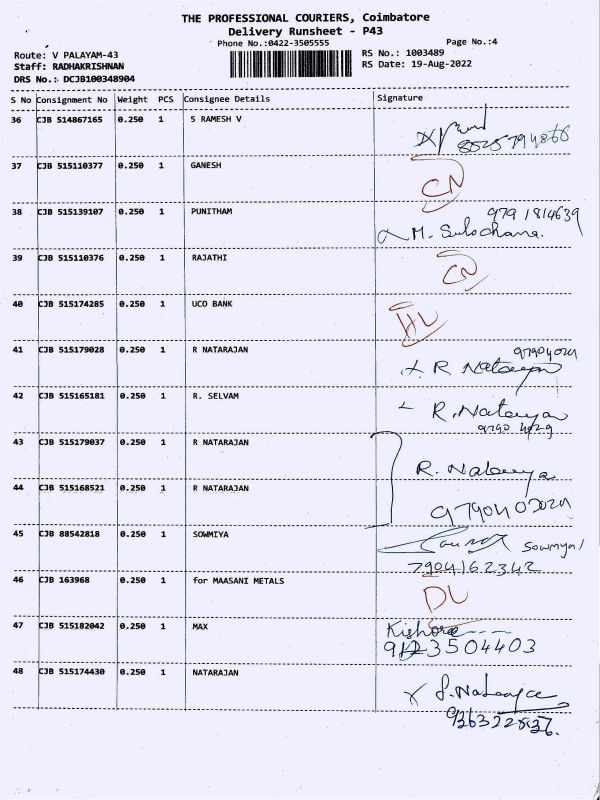 THE PROFESSIONAL COURIERS, Coimbatore
Delivery Runsheet - P43
Phone No.:0422-3505555
Page No.:4
Route: V PALAYAM-43
RS No.: 1003489
Staff: RADHAKRISHNAN
RS Date: 19-Aug-2022
DRS No.: DCJB100348904
S No Consignment No Weight PCS Consignee Details Signature
36 CJB 514867165 0.250 1 S RAMESH V
37 CJB 515110377 0.250 1 GANESH CN
38 CJB 515139107 0.250 1 PUNITHAM 9791814639
M. Sulochana.
39 CJB 515110376 0.250 1 RAJATHI CN
40 CJB 515174285 0.250 1 UCO BANK
41 CJB 515179028 0.250 1 R NATARAJAN
R
42 CJB 515165181 0.250 1 R. SELVAM R.
43 CJB 515179037 0.250 1 R NATARAJAN R.
44 CJB 515168521 0.250 1 R NATARAJAN
45 CJB 88542818 0.250 1 SOWMIYA Sowmya
7904162342
46 CJB 163968 0.250 1 for MAASANI METALS DL
47 CJB 515182042 0.250 1 MAX Kishore
9123504403
48 CJB 515174430 0.250 1 NATARAJAN